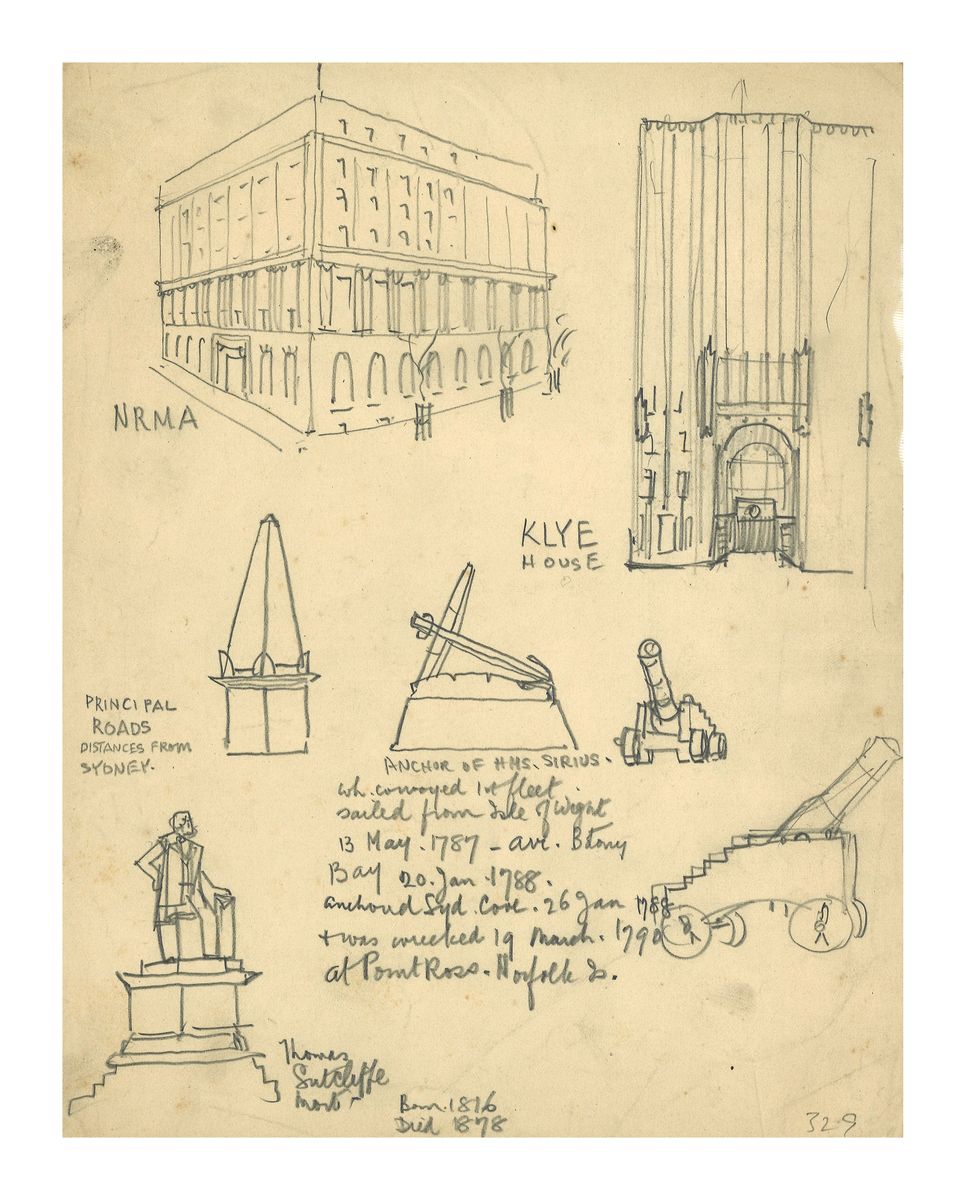 NRMA
KLYE
HOUSE
PRINCIPAL
ROADS
DISTANCES FROM
SYDNEY.
ANCHOR OF HMS. SIRIUS.
wh. convoyed 1st fleet
sailed from Isle of Wight
13 May. 1787 - arr. Btony
Bay 20. Jan. 1788.
anchored Syd. Cove. 26 Jan 1788
+ was wrecked 19 March. 1790
at Point Ross. Norfolk Is.
Thomas
Sutcliffe
Mort
Born. 1816
Died 1878
329